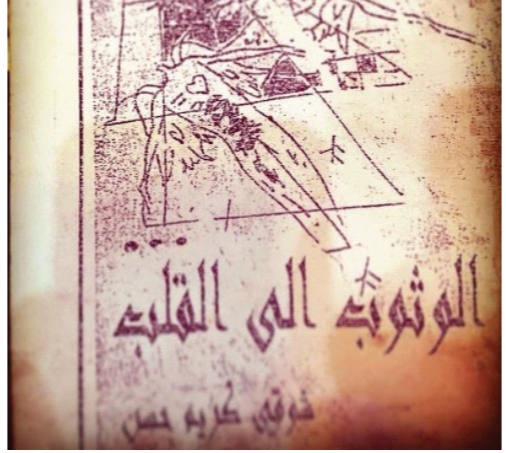 الوثوب الى القلب
شوقي كريم حسن